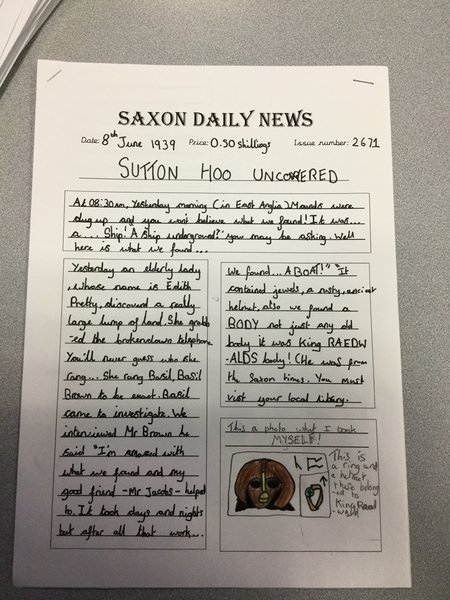 SAXON DAILY NEWS
Date: 8th June 1939 Price: 0.50 shillings Issue number: 2671
SUTTON HOO UNCOVERED
At 08:30am, Yesterday morning (in East Anglia) Mounds were
dug up and you won't believe what we found! It was...
a.... Ship! A ship underground?" you may be asking. Well
here is what we found...
Yesterday an elderly lady
, whose name is Edith
Pretty, discoverd a really
large lump of land. She grabb
-ed the brokendown telephone.
You'll never guess who she
rang... She rang Basil, Basil
Brown to be exact. Basil
came to investigate. We
interviewed Mr Brown he
said "I'm amazed with
what we found and my
good friend -Mr Jacobs- helped
to. It took days and nights
but after all that work...
We found... A BOAT!" "It
contained jewels, a rusty, ancient
helmet, also we found a
BODY not just any old
body it was King RAEDW
-ALDS body! (He was from
the Saxon times. You must
visit your local library.
This a photo what I took
MYSELF!
This is
a ring and
a helmet
these belong
-ed to
King Raed
-wald